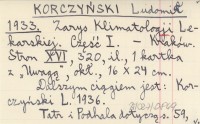 KORCZYŃSKI Ludomił
1933. Zarys Klimatologji Le-
karskiej. Część I. - Kraków.
Stron XVI, 320, il., 1 kartka
z „Uwagą", okł., 16 x 24 cm.
Dalszym ciągiem jest: Kor-
czyński L. 1936.
Tatr i Podhala dotyczą s. 59,